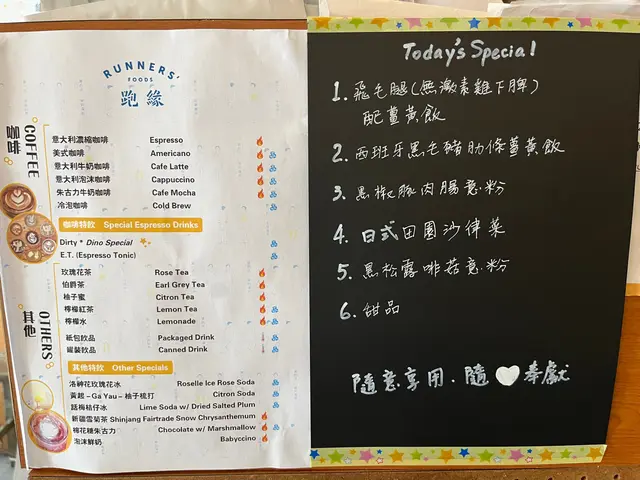 RUNNERS'
FOODS
跑緣
COFFEE
咖啡
意大利濃縮咖啡 Espresso
美式咖啡 Americano
意大利牛奶咖啡 Cafe Latte
意大利泡沫咖啡 Cappuccino
朱古力牛奶咖啡 Cafe Mocha
冷泡咖啡 Cold Brew
咖啡特飲 Special Espresso Drinks
Dirty * Dino Special
E.T. (Espresso Tonic)
OTHERS
其他
玫瑰花茶 Rose Tea
伯爵茶 Earl Grey Tea
柚子蜜 Citron Tea
檸檬紅茶 Lemon Tea
檸檬水 Lemonade
紙包飲品 Packaged Drink
罐裝飲品 Canned Drink
其他特飲 Other Specials
洛神花玫瑰冰 Roselle Ice Rose Soda
黃起－Ga Yau－柚子梳打 Citron Soda
話梅桔仔冰 Lime Soda w/ Dried Salted Plum
新疆雪菊茶 Shinjang Fairtrade Snow Chrysanthemum
棉花糖朱古力 Chocolate w/ Marshmallow
泡沫鮮奶 Babyccino
Today's Special
1. 飛毛腿(無激素雞下髀)
配薑黃飯
2. 西班牙黑毛豬肋條薑黃飯
3. 黑椒豚肉腸意粉
4. 日式田園沙律菜
5. 黑松露啡菇意粉
6. 甜品
隨意享用．隨🤍奉獻